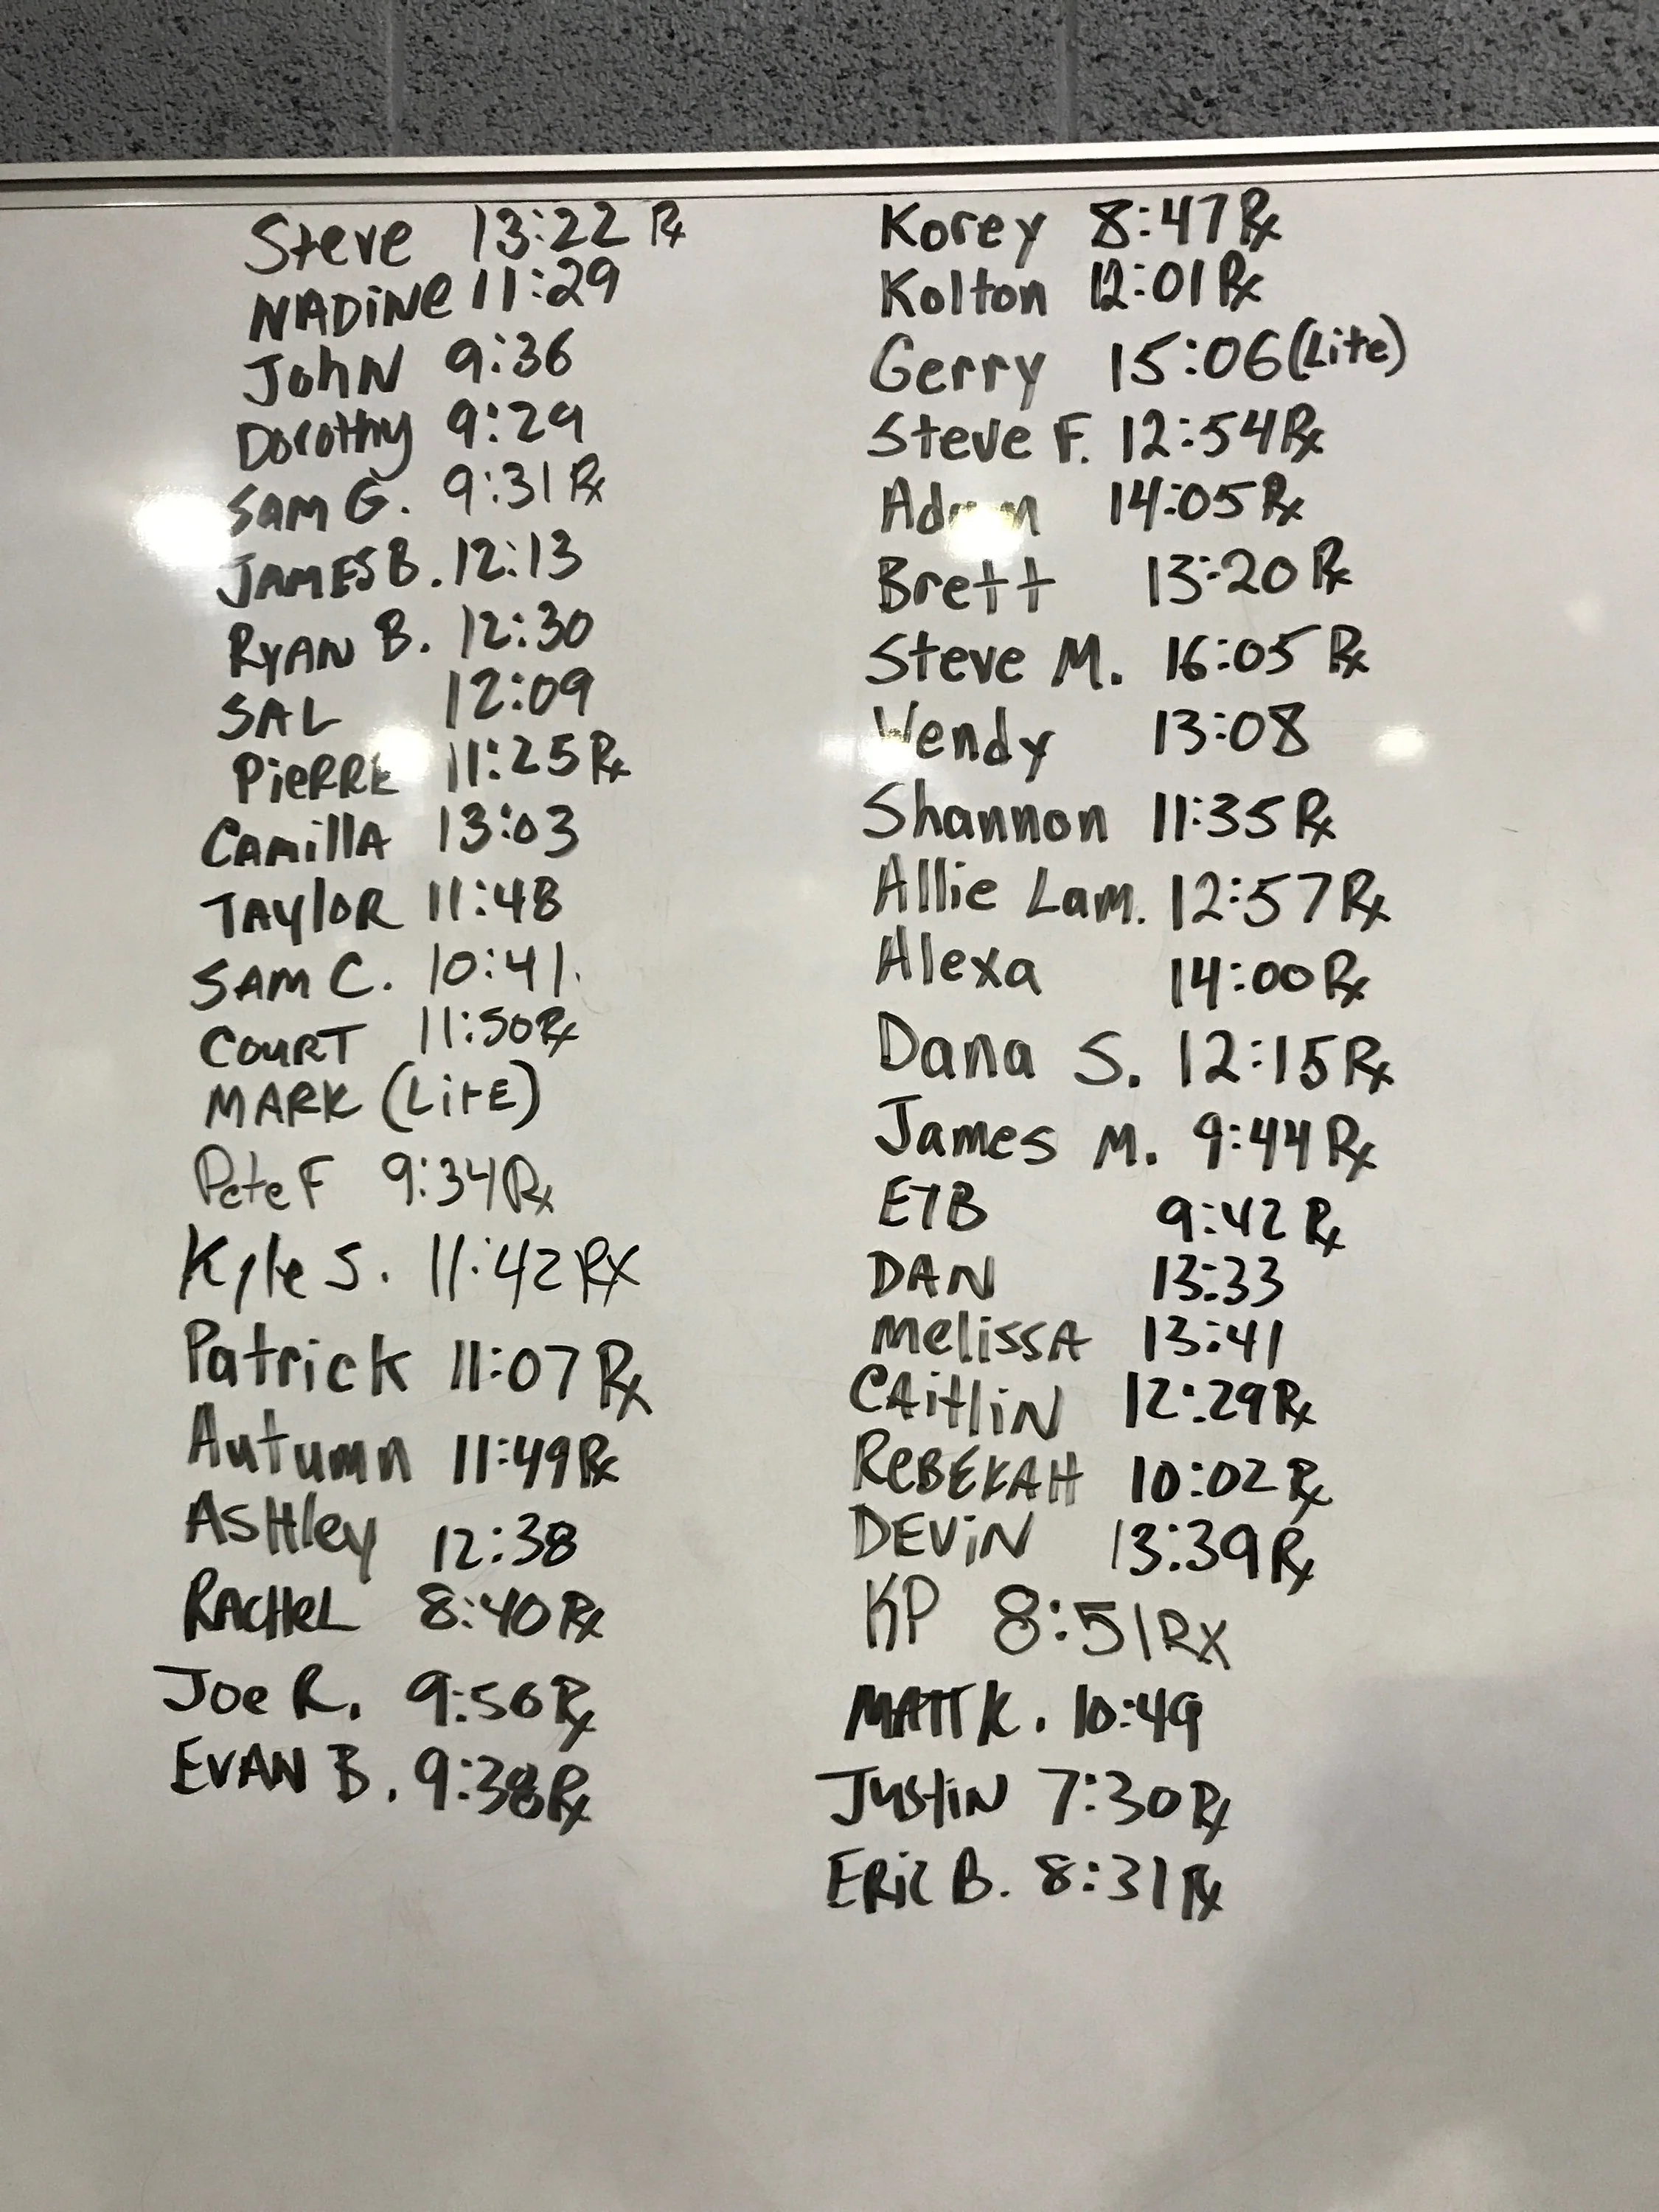 Steve 13:22 Rx
NADiNe 11:29
JohN 9:36
DoroThy 9:29
SAM G. 9:31 Rx
JAMES B. 12:13
RYAN B. 12:30
SAL 12:09
PieRRE 11:25 Rx
CAMillA 13:03
TAylOR 11:48
SAM C. 10:41.
COURT 11:50 Rx
MARK (LiTE)
Pete F 9:34 Rx
Kyle S. 11:42 RX
Patrick 11:07 Rx
Autumn 11:49 Rx
AsHley 12:38
RACHeL 8:40 Rx
Joe R. 9:56 Rx
EVAN B. 9:38 Rx
Korey 8:47 Rx
Kolton 12:01 Rx
Gerry 15:06 (Lite)
Steve F. 12:54 Rx
14:05 Rx
Brett 13:20 Rx
Steve M. 16:05 Rx
Wendy 13:08
Shannon 11:35 Rx
Allie Lam. 12:57 Rx
Alexa 14:00 Rx
Dana S. 12:15 Rx
James M. 9:44 Rx
ETB 9:42 Rx
DAN 13:33
MelissA 13:41
CAitliN 12:29 Rx
ReBEKAH 10:02 Rx
DEViN 13:39 Rx
KP 8:51 RX
MATT K. 10:49
JustiN 7:30 Rx
ERiC B. 8:31 Rx